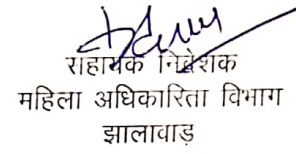 सहायक निदेशक
महिला अधिकारिता विभाग
झालावाड़